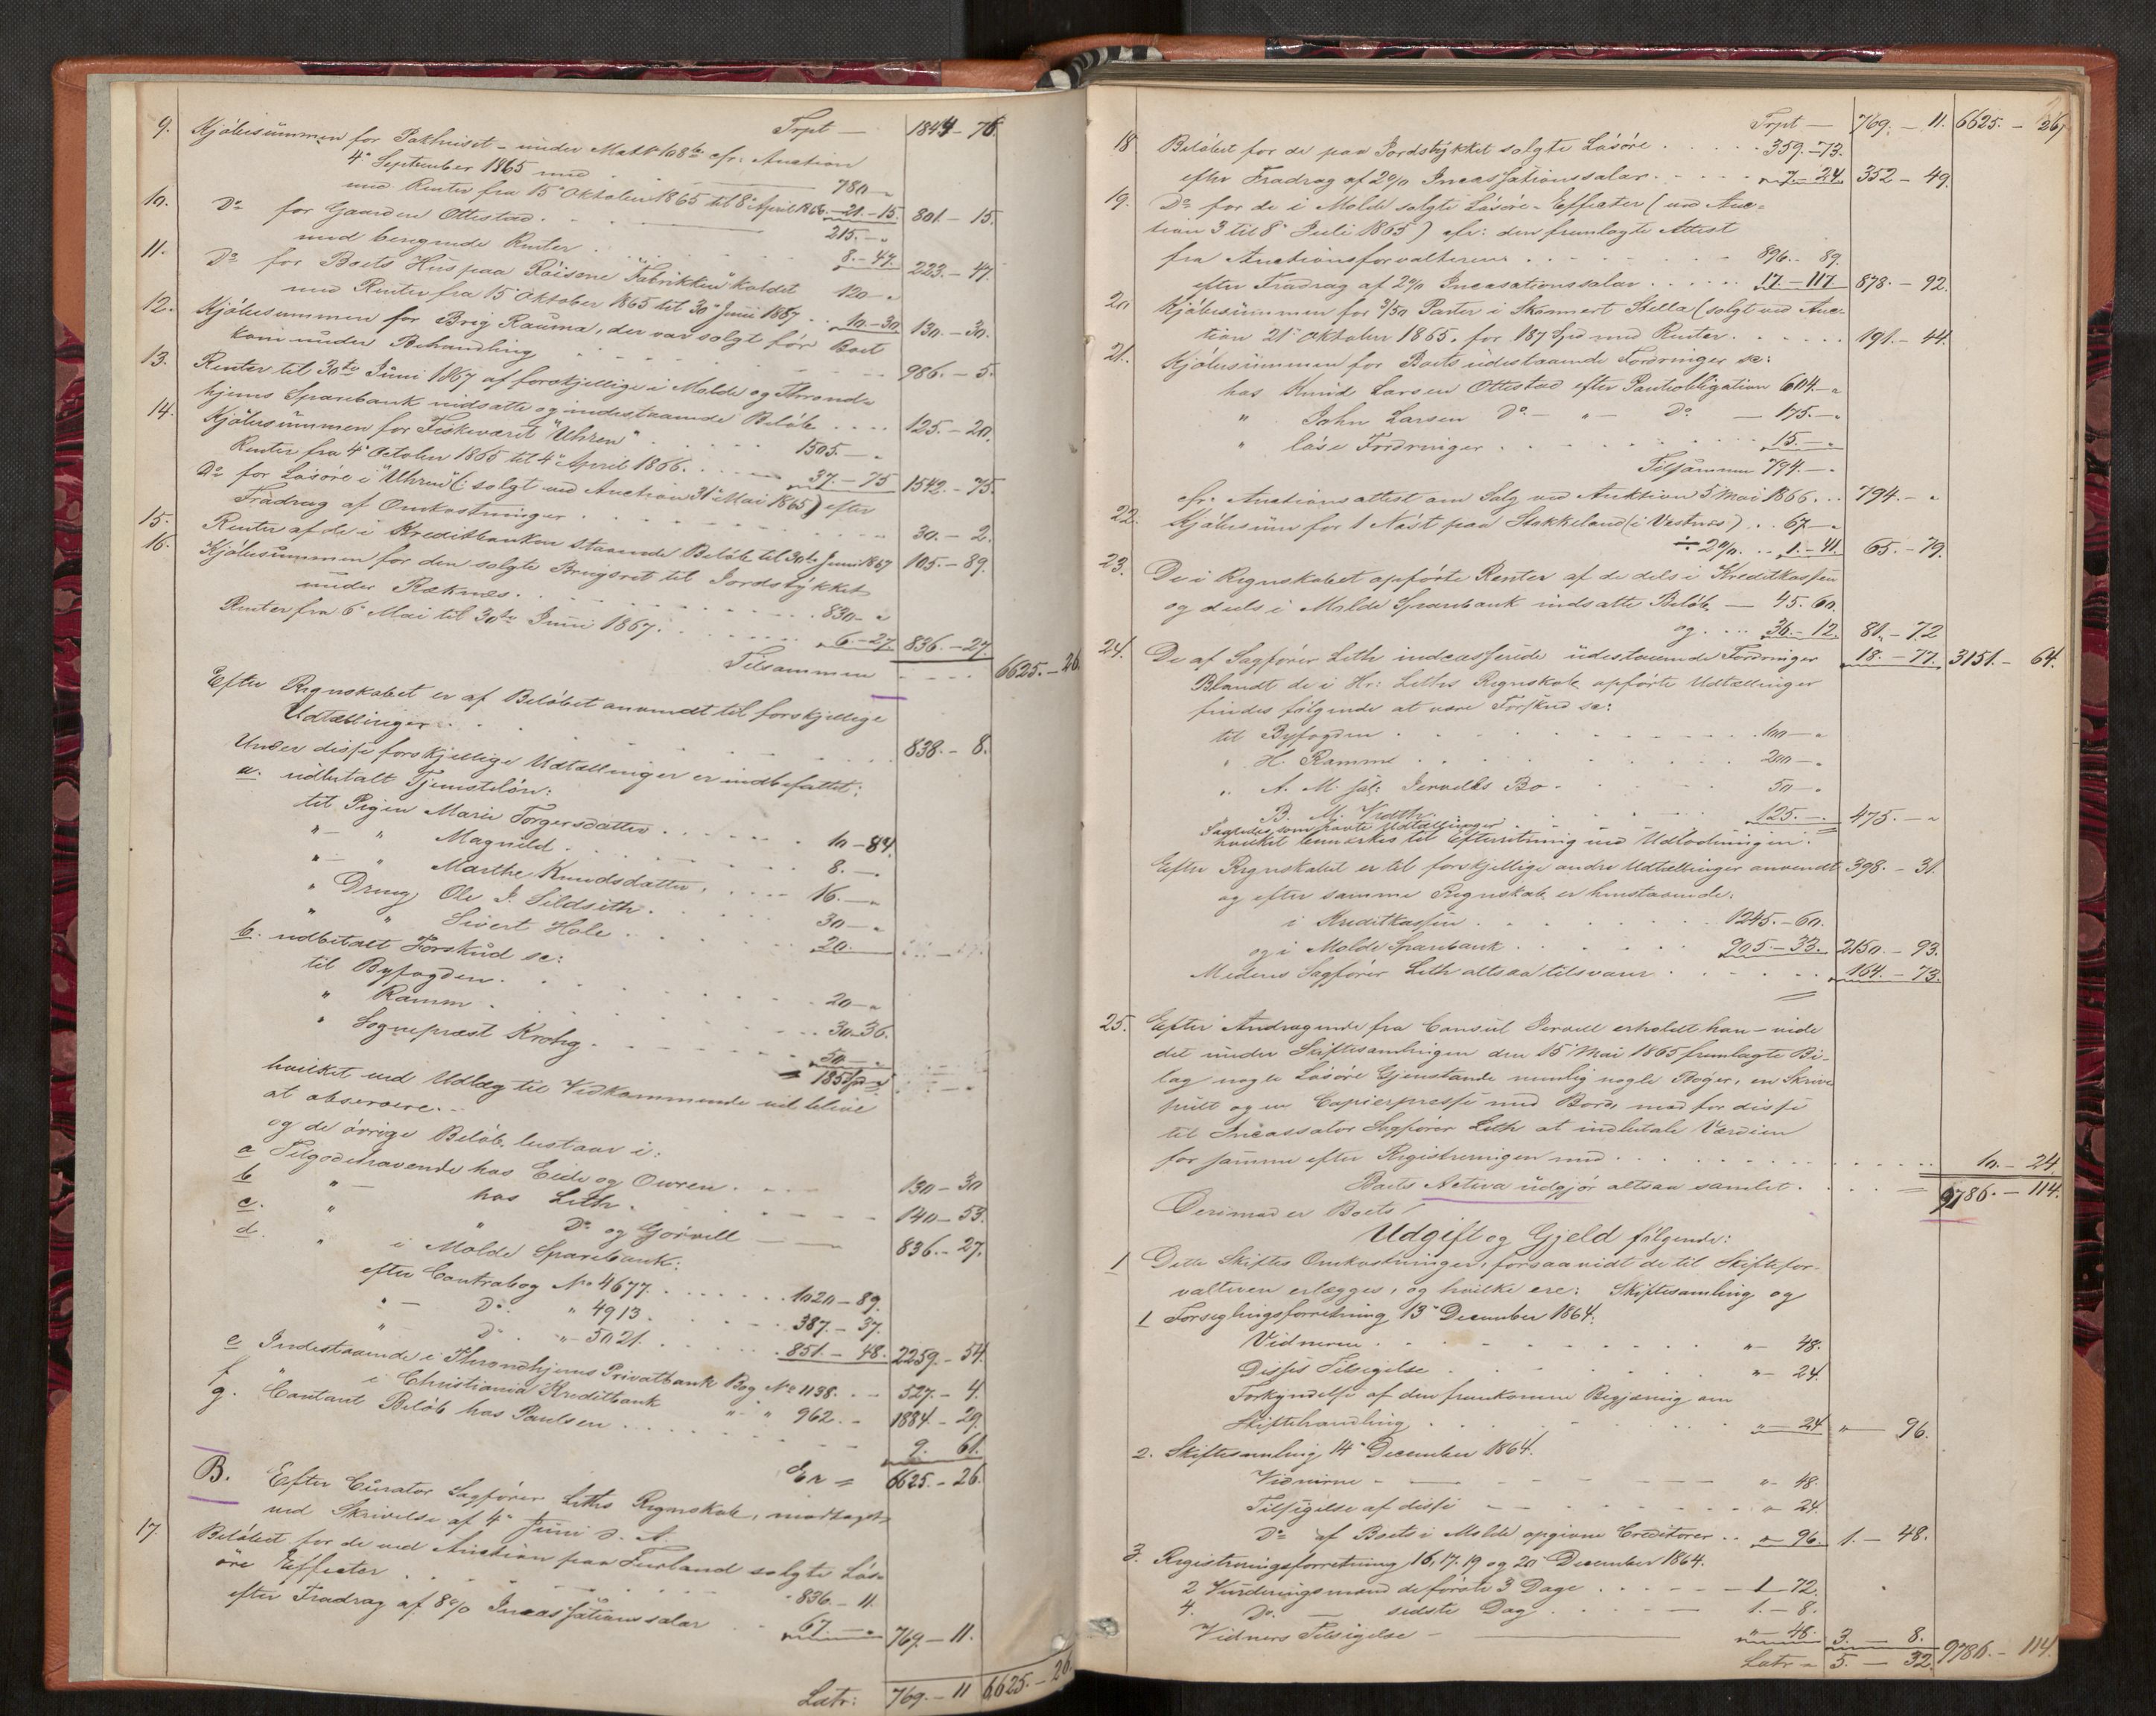 Trpt — 1844 - 76.
9. Kjøbesummen for Pakhuset - under Matr. No 8 cfr. Auction
4de September 1865 med 780 — "
med Renter fra 15de Oktober 1865 til 8de April 1866. — 21. — 15. 801. — 15.
10. Do for Gaarden Ottestad. 215. — "
med beregnede Renter 8. — 47. 223. — 47.
11. Do for Boets Hus paa Röisene "Fabrikken" kaldet 120 — "
med Renter fra 15de Oktober 1865 til 30te Juni 1867. 10 — 30 130. — 30.
12. Kjøbesummen for Brig Rauma, der var solgt før Boet
kom under Behandling 986. — 5.
13. Renter til 30te Juni 1867 af forskjellige i Molde og Thrond-
hjems Sparebank indsatte og indestaaende Beløb 125. — 20.
14. Kjøbesummen for Fiskeværet "Uhren" 1505. — "
Renter fra 4de October 1865 til 4de April 1866. 37. — 75 1542. — 75.
Do for Løsøre i "Uhren" (: solgt ved Auction 31te Mai 1865) efter
Fradrag af Omkostninger 30. — 2.
15. Renter af de i Kreditbanken staaende Beløb til 30te Juni 1867 105. — 89.
16. Kjøbesummen for den solgte Brugsret til Jordstykket
under Reknæs. 830 — "
Renter fra 6te Mai til 30te Juni 1867. 6. — 27. 836. — 27.
Tilsammen 6625. — 26.
Efter Regnskabet er af Beløbet anvendt til forskjellige
Udtællinger 838. — 8.
Under disse forskjellige Udtællinger er indbefattet:
a. udbetalt Tjenesteløn:
til Pigen Marie Torgersdatter 10 — 84.
" — " Magnild 8. — "
" — " Marthe Knudsdatter 16. — "
" Dreng Ole J. Sildseth. 30 — "
" " Sivert Hole 20. —
b. udbetalt Forskud sc:
til Byfogden. 20 — "
" Ramm. 30 — 36.
" Sogneprest Krohg. 50 — "
= 185 Spd
hvilket ved Udlæg til Vedkommende vil blive
at observere. —
og de øvrige Beløb bestaar i:
a Tilgodehavende hos Eide og Owren. 130 — 30
b " — hos Leth. 140 — 53.
c. " " Do og Gørvell 836. — 27.
d. " i Molde Sparebank:
efter Contrabog No 4677. 1020 — 89.
" — Do. " 4913. 387. — 37.
" — Do. " — 5021. 851. — 48. 2259. — 54.
e Indestaaende i Throndhjems Privatbank Bog No 1138. 527. — 4.
f " i Christiania Kreditbank " — " 962. 1884. — 29.
g. Contant Beløb hos Paulsen 9. 61.
Er = 6625. — 26.
B. Efter Curator Sagfører Leths Regnskab, modtaget
ved Skrivelse af 4de Juni d. A.
17. Beløbet for de ved Auction paa Furland solgte Løs-
øre Effecter 836. — 11.
efter Fradrag af 8% Incassationssalar 67. — " 769. — 11.
Latr: 769. — 11 6625. — 26
Trpt — 769. — 11. 6625. — 26
18 Beløbet for de paa Jordstykket solgte Løsøre 359. — 73.
efter Fradrag af 2% Incassationssalar 7. — 24 352 — 49.
19. Do for de i Molde solgte Løsøre - Effecter (ved Auc-
tion 3 til 8de Juli 1865) cfr: den fremlagte Attest
fra Auctionsforvalteren 896. — 89.
efter Fradrag af 2% Incassationssalar 17. — 117 878. — 92.
20 Kjøbesummen for 3/50 Parter i Skonnert Stella (solgt ved Auc-
tion 21de Oktober 1865, for 187 Spd med Renter. 191. — 44.
21. Kjøbesummen for Boets udestaaende Fordringer sc:
hos Knud Larsen Ottestad efter Panteobligation 604. — "
" John Larsen Do. — " — Do. — 175. — "
" løse Fordringer 15. — "
Tilsammen 794. — "
cfr. Auctionsattest om Salg ved Auktion 5 Mai 1866. 794. — "
22. Kjøbesum for 1 Nøst paa Stokkeland (i Vestnæs) 67. — "
÷ 2% 1. — 41. 65. — 79.
23. De i Regnskabet opførte Renter af de dels i Kreditkassen
og deels i Molde Sparebank indsatte Beløb — 45. 60.
og 36. — 12. 81. — 72
24. De af Sagfører Leth indcasserede udestaaende Fordringer 18. — 77. 3151. — 64.
Blandt de i Hr: Leths Regnskab opførte Udtællinger
findes følgende at være Forskud sc:
til Byfogden 100 — "
" H. Ramm 200 — "
" A. M. sal: Jervells Bo 50 — "
B. M. Width 125. — " 475. — "
Saaledes som havte Udtællinger
hvilket bemærkes til Efterretning ved Udlodningen.
Efter Regnskabet er til forskjellige andre Udtællinger anvendt 398. — 31.
og efter samme Regnskab er henstaaende:
i Kreditkassen 1245. — 60.
og i Molde Sparebank 905. — 33. 2150. — 93.
Medens Sagfører Leth altsaa tilsvarer 164. — 73.
25. Efter Andragende fra Consul Jervell erholdt han - vide
det under Skiftesamlingen den 15de Mai 1865 fremlagte Bi-
lag nogle Løsøre Gjenstande nemlig nogle Bøger, en Skrive
pult og en Copierpresse med Bord, mod for disse
til Incassator Sagfører Leth at indbetale Værdien
for samme efter Registreringen med 10. — 24.
Boets Activa udgjør altsaa samlet = 9786. — 114.
Derimod er Boets
Udgift og Gjeld følgende:
1 Dette Skiftes Omkostninger, forsaavidt de til Skiftefor-
valteren erlægges, og hvilke ere: Skiftesamling og
1 Forseglingsforretning 13de December 1864.
Vidnerne " — 48.
Disses Tilsigelse " — 24.
Forkyndelse af den fremkomne Begjæring om
Skiftehandling " — 24 " — 96.
2. Skiftesamling 14de December 1864.
Vidnerne " — 48.
Tilsigelse af disse " 24.
Do af Boets i Molde opgivne Creditorer " — 96. 1. — 48.
3. Registreringsforretning 16, 17, 19 og 20 December 1864.
2 Vurderingsmænd de første 3 Dage 1 — 72.
4. Do. — sidste Dag 1. — 8.
Vidners Tilsigelse " — 48. 3. — 8.
Latr — 5. — 32. 9786. — 114.